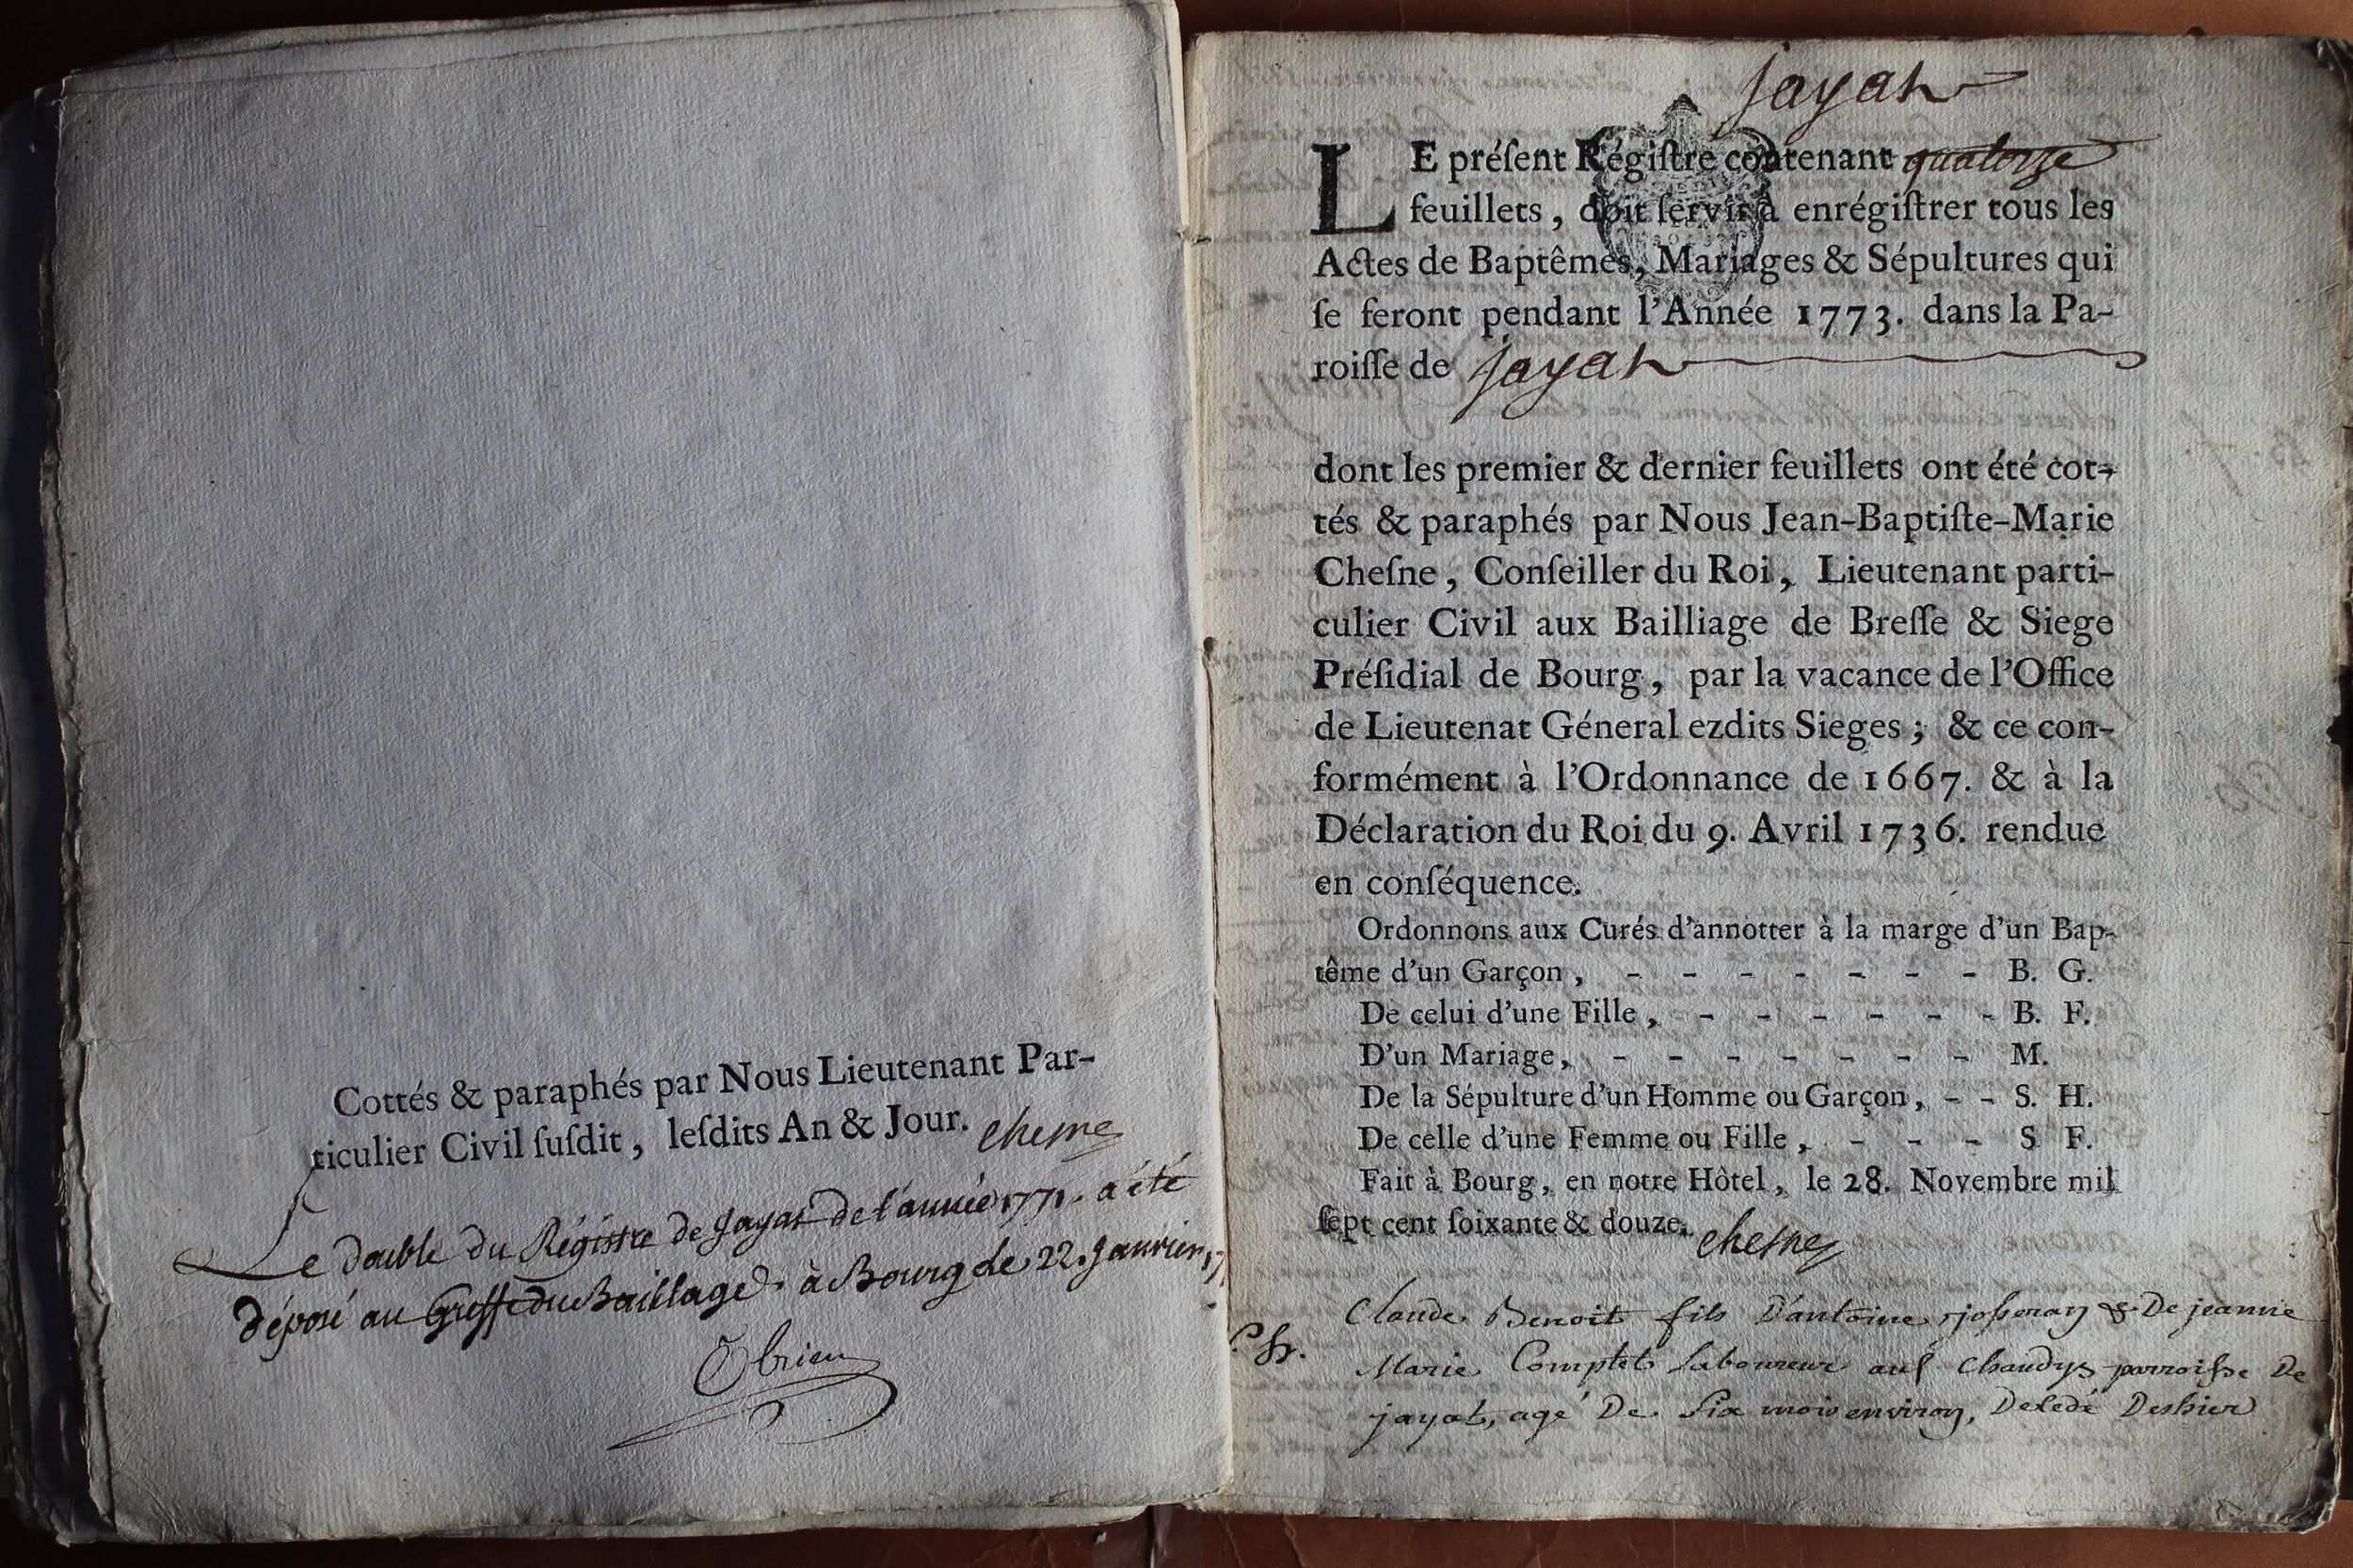 Cottés & paraphés par Nous Lieutenant Par-
ticulier Civil ſuſdit, leſdits An & Jour. chesne
Le double du Régistre de Jayat de l'année 1771. a été
déposé au Greffe du Bailliage à Bourg le 22. Janvier
Obrien
Jayat
LE préſent Régiſtre contenant quatorze
feuillets, doit ſervir à enrégiſtrer tous les
Actes de Baptêmes, Mariages & Sépultures qui
ſe feront pendant l'Année 1773. dans la Pa-
roiſſe de Jayat
dont les premier & dernier feuillets ont été cot-
tés & paraphés par Nous Jean-Baptiſte-Marie
Cheſne, Conſeiller du Roi, Lieutenant parti-
culier Civil aux Bailliage de Breſſe & Siege
Préſidial de Bourg, par la vacance de l'Office
de Lieutenat Géneral ezdits Sieges; & ce con-
formément à l'Ordonnance de 1667. & à la
Déclaration du Roi du 9. Avril 1736. rendue
en conſéquence.
Ordonnons aux Curés d'annotter à la marge d'un Bap-
tême d'un Garçon, - - - - - - - B. G.
De celui d'une Fille, - - - - - - B. F.
D'un Mariage, - - - - - - - M.
De la Sépulture d'un Homme ou Garçon, - - S. H.
De celle d'une Femme ou Fille, - - - S F.
Fait à Bourg, en notre Hôtel, le 28. Novembre mil
ſept cent ſoixante & douze. chesne
Claude Benoit fils D'antoine josseran & De jeanne
S. h. Marie Complet laboureur aux chaudys parroisse De
jayat, agé De six mois environ, Decedé Deshier